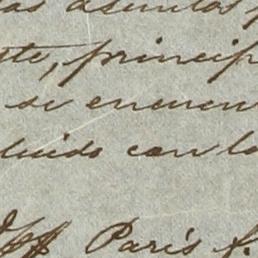 as asuntos
te, princip
se encuen
luido con la
París